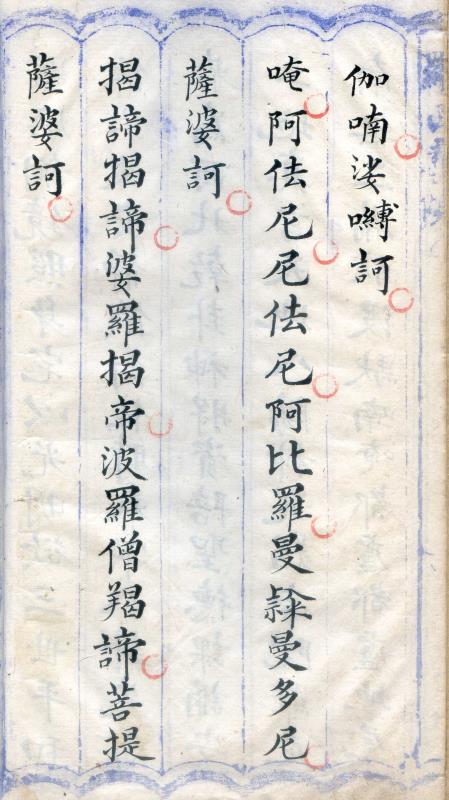 伽喃娑嚩訶
唵阿佉尼尼佉尼阿比羅曼隸曼多尼
薩婆訶
揭諦揭諦婆羅揭帝波羅僧羯諦菩提
薩婆訶